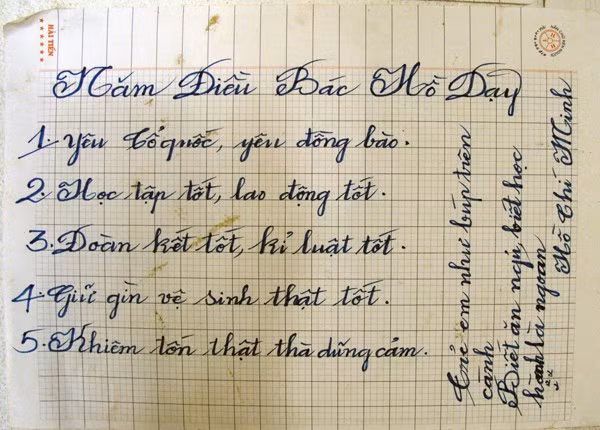 HẢI TIẾN
Năm Điều Bác Hồ Dạy
1. Yêu Tổ quốc, yêu đồng bào.
2. Học tập tốt, lao động tốt.
3. Đoàn kết tốt, kỉ luật tốt.
4. Giữ gìn vệ sinh thật tốt.
5. Khiêm tốn thật thà dũng cảm.
Trẻ em như búp trên
cành
Biết ăn ngủ, biết học
hành là ngoan
Hồ Chí Minh